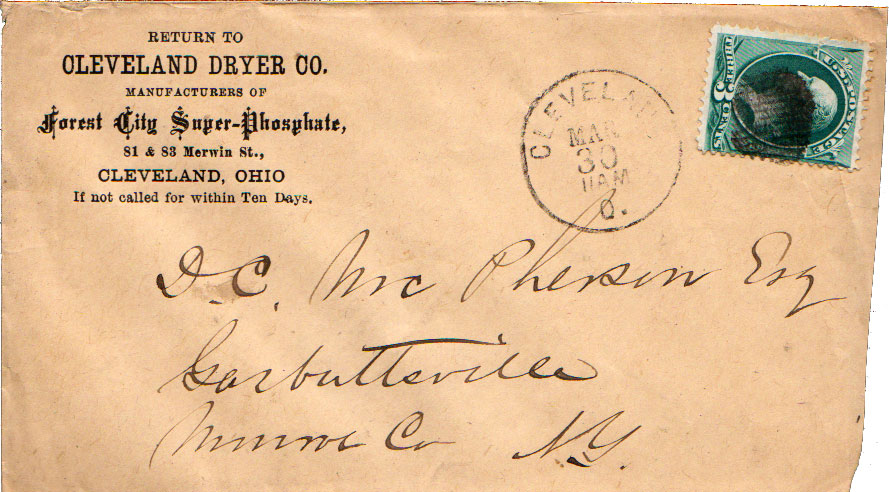 RETURN TO
CLEVELAND DRYER CO.
MANUFACTURERS OF
Forest City Super-Phosphate,
81 & 83 Merwin St.,
CLEVELAND, OHIO
If not called for within Ten Days.
CLEVELAN
MAR
30
11AM
O.
THREE 3 CENTS
U.S. POSTAGE
D. C. McPherson Esq
Garbuttsville
Munroe Co N.Y.